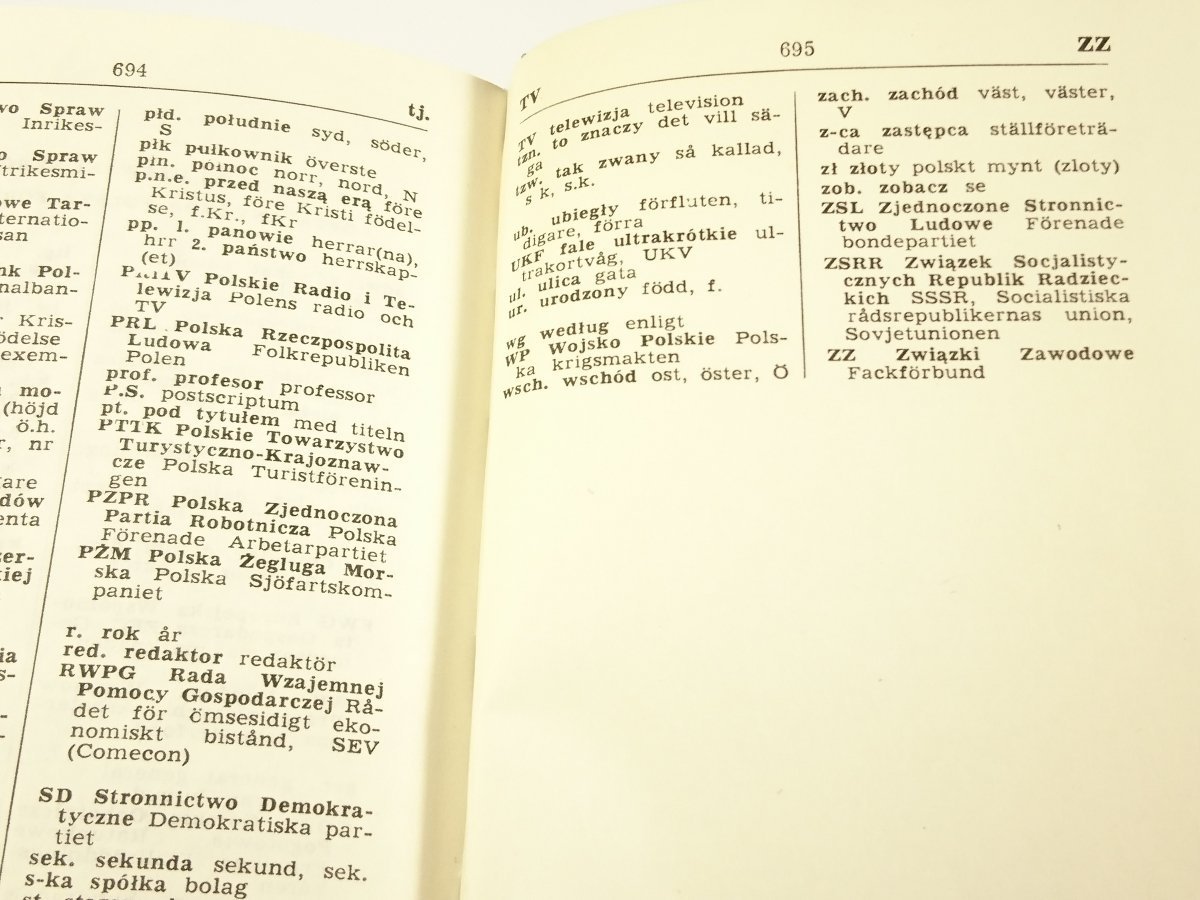 694
tj.
wo Spraw
Inrikes-
o Spraw
trikesmi-
owe Tar-
ternatio-
san
nk Pol-
nalban-
r Kris-
ödelse
exem-
mo-
(höjd
ö.h.
r, nr
gare
dów
enta
zer-
kiej
ia
s-
płd. południe syd, söder,
S
płk pułkownik överste
płn. północ norr, nord, N
p.n.e. przed naszą erą före
Kristus, före Kristi födel-
se, f.Kr., fKr
pp. 1. panowie herrar(na),
hrr 2. państwo herrskap-
(et)
PRiTV Polskie Radio i Te-
lewizja Polens radio och
TV
PRL Polska Rzeczpospolita
Ludowa Folkrepubliken
Polen
prof. profesor professor
P.S. postscriptum
pt. pod tytułem med titeln
PTTK Polskie Towarzystwo
Turystyczno-Krajoznaw-
cze Polska Turistförenin-
gen
PZPR Polska Zjednoczona
Partia Robotnicza Polska
Förenade Arbetarpartiet
PŻM Polska Żegluga Mor-
ska Polska Sjöfartskom-
paniet
r. rok år
red. redaktor redaktör
RWPG Rada Wzajemnej
Pomocy Gospodarczej Rå-
det för ömsesidigt eko-
nomiskt bistånd, SEV
(Comecon)
SD Stronnictwo Demokra-
tyczne Demokratiska par-
tiet
sek. sekunda sekund, sek.
s-ka spółka bolag
TV
695
ZZ
TV telewizja television
tzn. to znaczy det vill sä-
ga
tzw. tak zwany så kallad,
s k, s.k.
ub. ubiegły förfluten, ti-
digare, förra
UKF fale ultrakrótkie ul-
trakortvåg, UKV
ul. ulica gata
ur. urodzony född, f.
wg według enligt
WP Wojsko Polskie Pols-
ka krigsmakten
wsch. wschód ost, öster, Ö
zach. zachód väst, väster,
V
z-ca zastępca ställföreträ-
dare
zł złoty polskt mynt (zloty)
zob. zobacz se
ZSL Zjednoczone Stronnic-
two Ludowe Förenade
bondepartiet
ZSRR Związek Socjalisty-
cznych Republik Radziec-
kich SSSR, Socialistiska
rådsrepublikernas union,
Sovjetunionen
ZZ Związki Zawodowe
Fackförbund